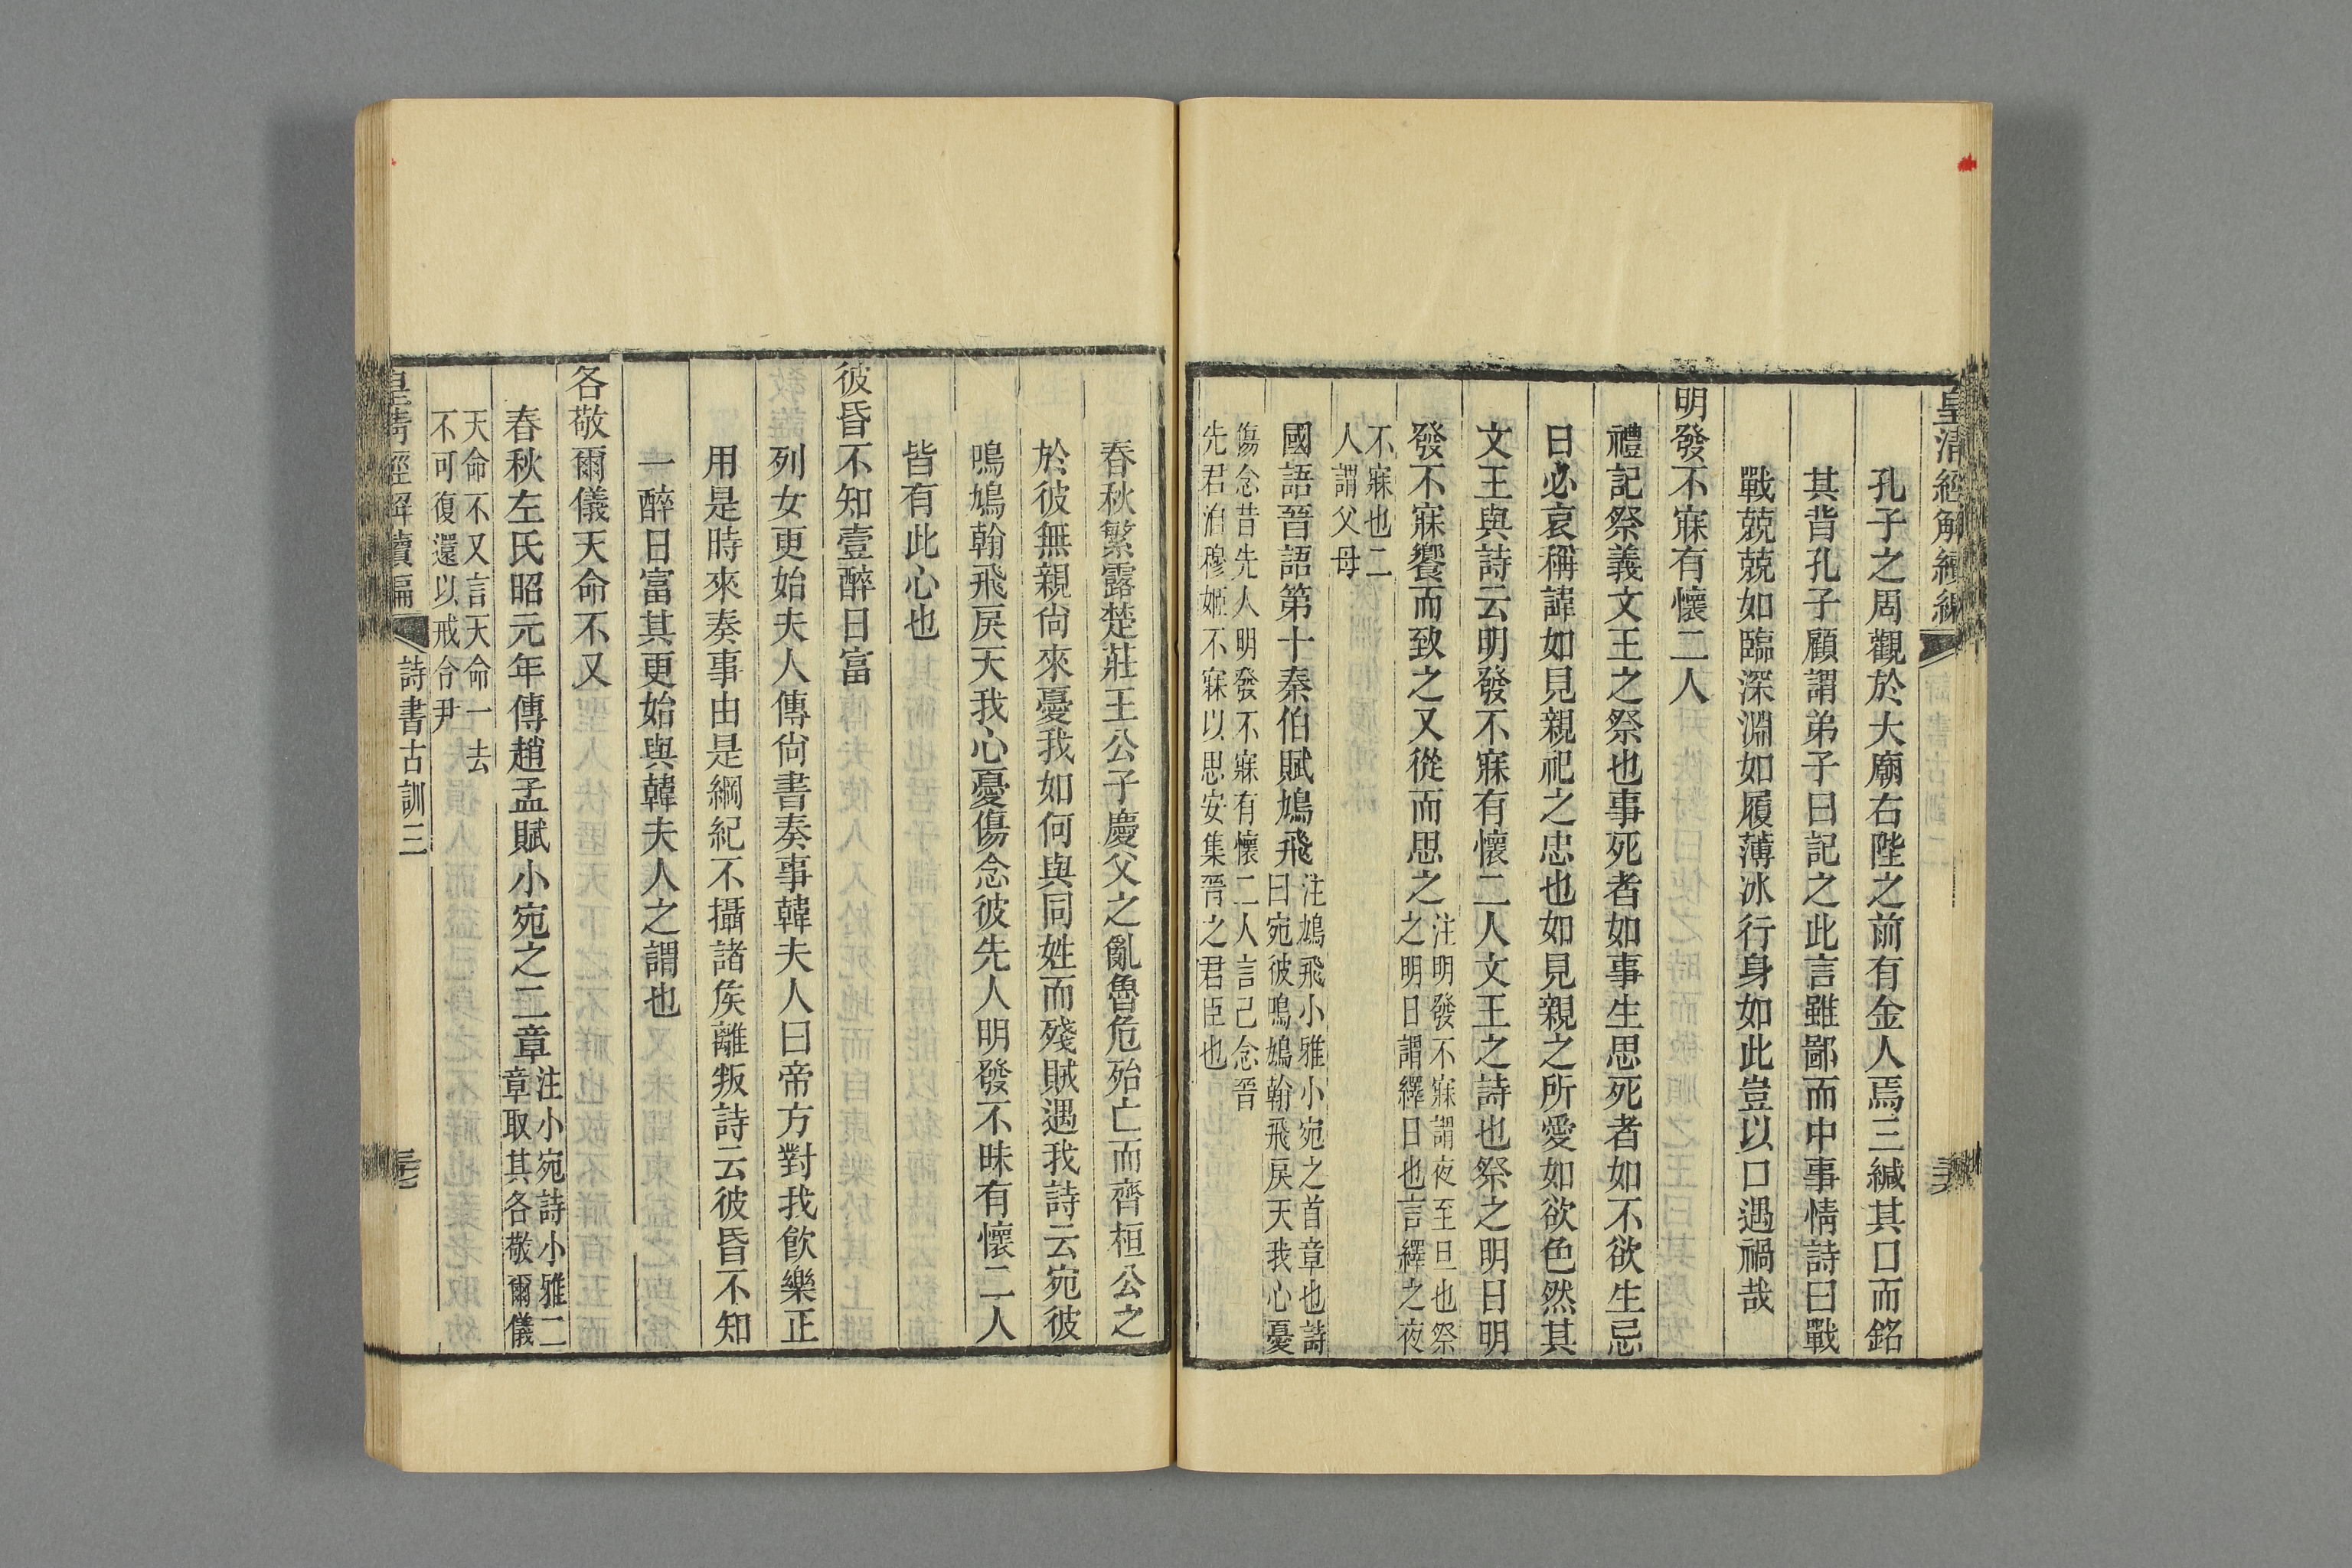 皇清經解續編
孔子之周觀於大廟右陛之前有金人焉三緘其口而銘
其背孔子顧謂弟子曰記之此言雖鄙而中事情詩曰戰
戰兢兢如臨深淵如履薄冰行身如此豈以口遇禍哉
明發不寐有懷二人
禮記祭義文王之祭也事死者如事生思死者如不欲生忌
日必哀稱諱如見親祀之忠也如見親之所愛如欲色然其
文王與詩云明發不寐有懷二人文王之詩也祭之明日明
發不寐饗而致之又從而思之
注明發不寐謂夜至旦也祭
之明日謂繹日也言繹之夜
不寐也二
人謂父母
國語晉語第十秦伯賦鳩飛
注鳩飛小雅小宛之首章也詩
曰宛彼鳴鳩翰飛戾天我心憂
傷念昔先人明發不寐有懷二人言己念晉
先君洎穆姬不寐以思安集晉之君臣也
春秋繁露楚莊王公子慶父之亂魯危殆亡而齊桓公之
於彼無親尙來憂我如何與同姓而殘賊遇我詩云宛彼
鳴鳩翰飛戾天我心憂傷念彼先人明發不昧有懷二人
皆有此心也
彼昏不知壹醉日富
列女更始夫人傳尙書奏事韓夫人曰帝方對我飮樂正
用是時來奏事由是綱紀不攝諸侯離叛詩云彼昏不知
一醉日富其更始與韓夫人之謂也
各敬爾儀天命不又
春秋左氏昭元年傳趙孟賦小宛之二章
注小宛詩小雅二
章取其各敬爾儀
天命不又言天命一去
不可復還以戒令尹
皇清經解續編
詩書古訓三